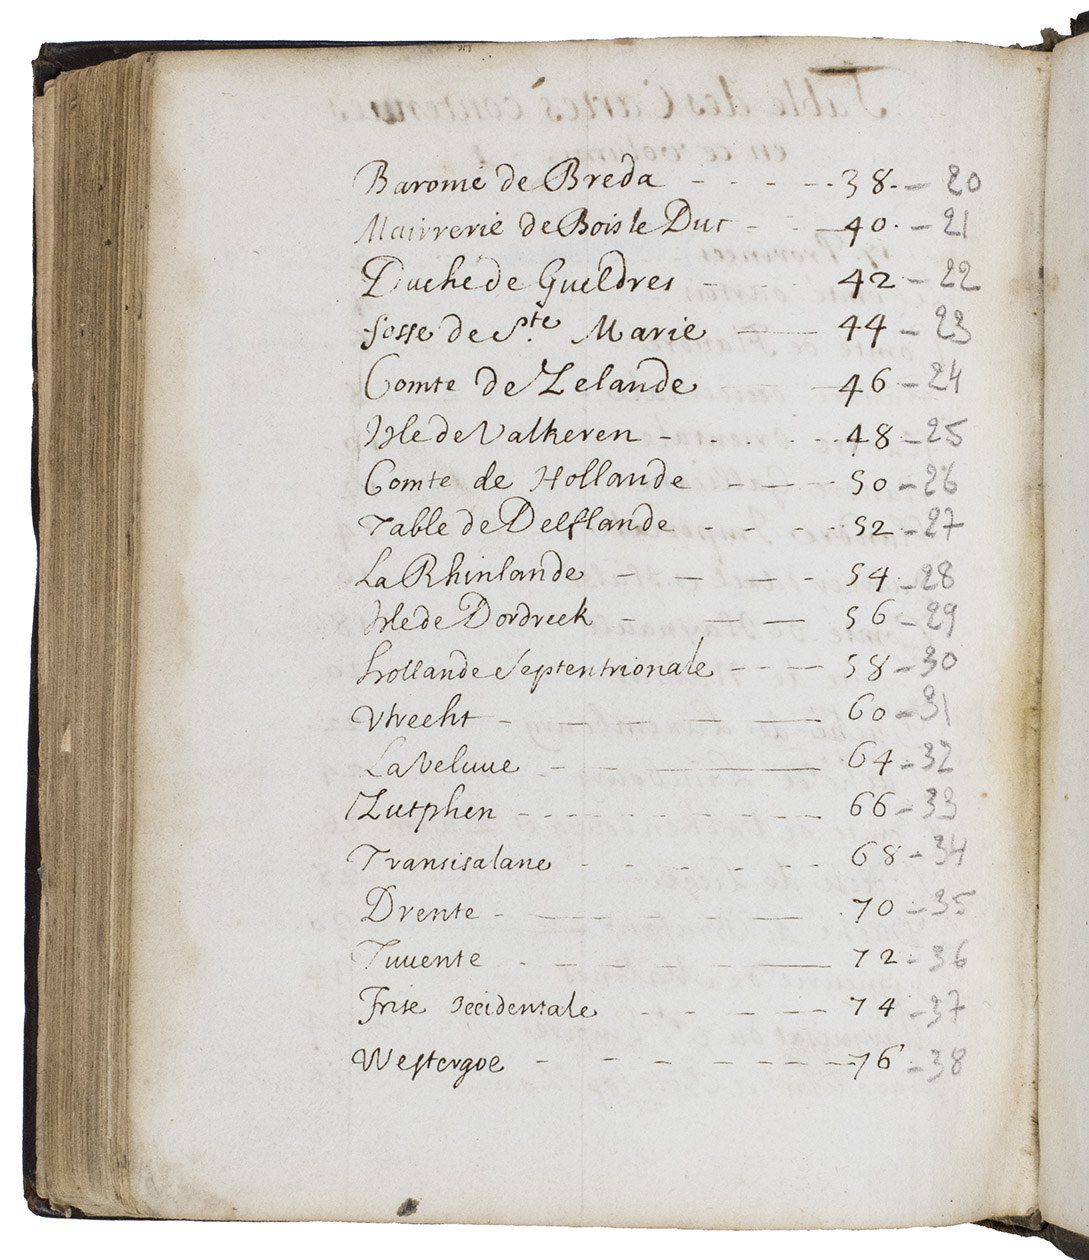 Baronie de Breda - - - - 38. - 20
Mairrerie de Bois le Duc - - 40. - 21
Duche de Gueldres - - - 42 - 22
Fosse de Ste Marie — 44 - 23
Comte de Zelande — 46 - 24
Isle de Valkeren - - - - 48 - 25
Comte de Hollande - - - 50 - 26
Table de Delflande - - - 52 - 27
La Rhinlande - - - - 54. - 28
Isle de Dordreck - - - 56 - 29
hollande Septentrionale - - - 58 - 30
Vtrecht - - - - - 60 - 31
La Veluue - - — 64 - 32
Zutphen - - - - - - 66 - 33
Transisalane - - - - - 68 - 34
Drente - — - - — 70 - 35
Tuuente - - - - — 72 - 36
Frise occidentale - - - - - 74 - 37
Westergoe - - - - - - - 76. - 38